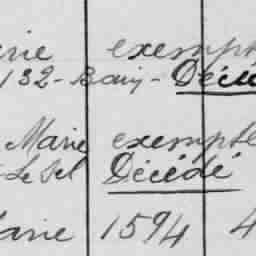 rie exempt
132 - Bourg - Décé
Marie exempte
Le Sel Décédé
Marie 1594 4